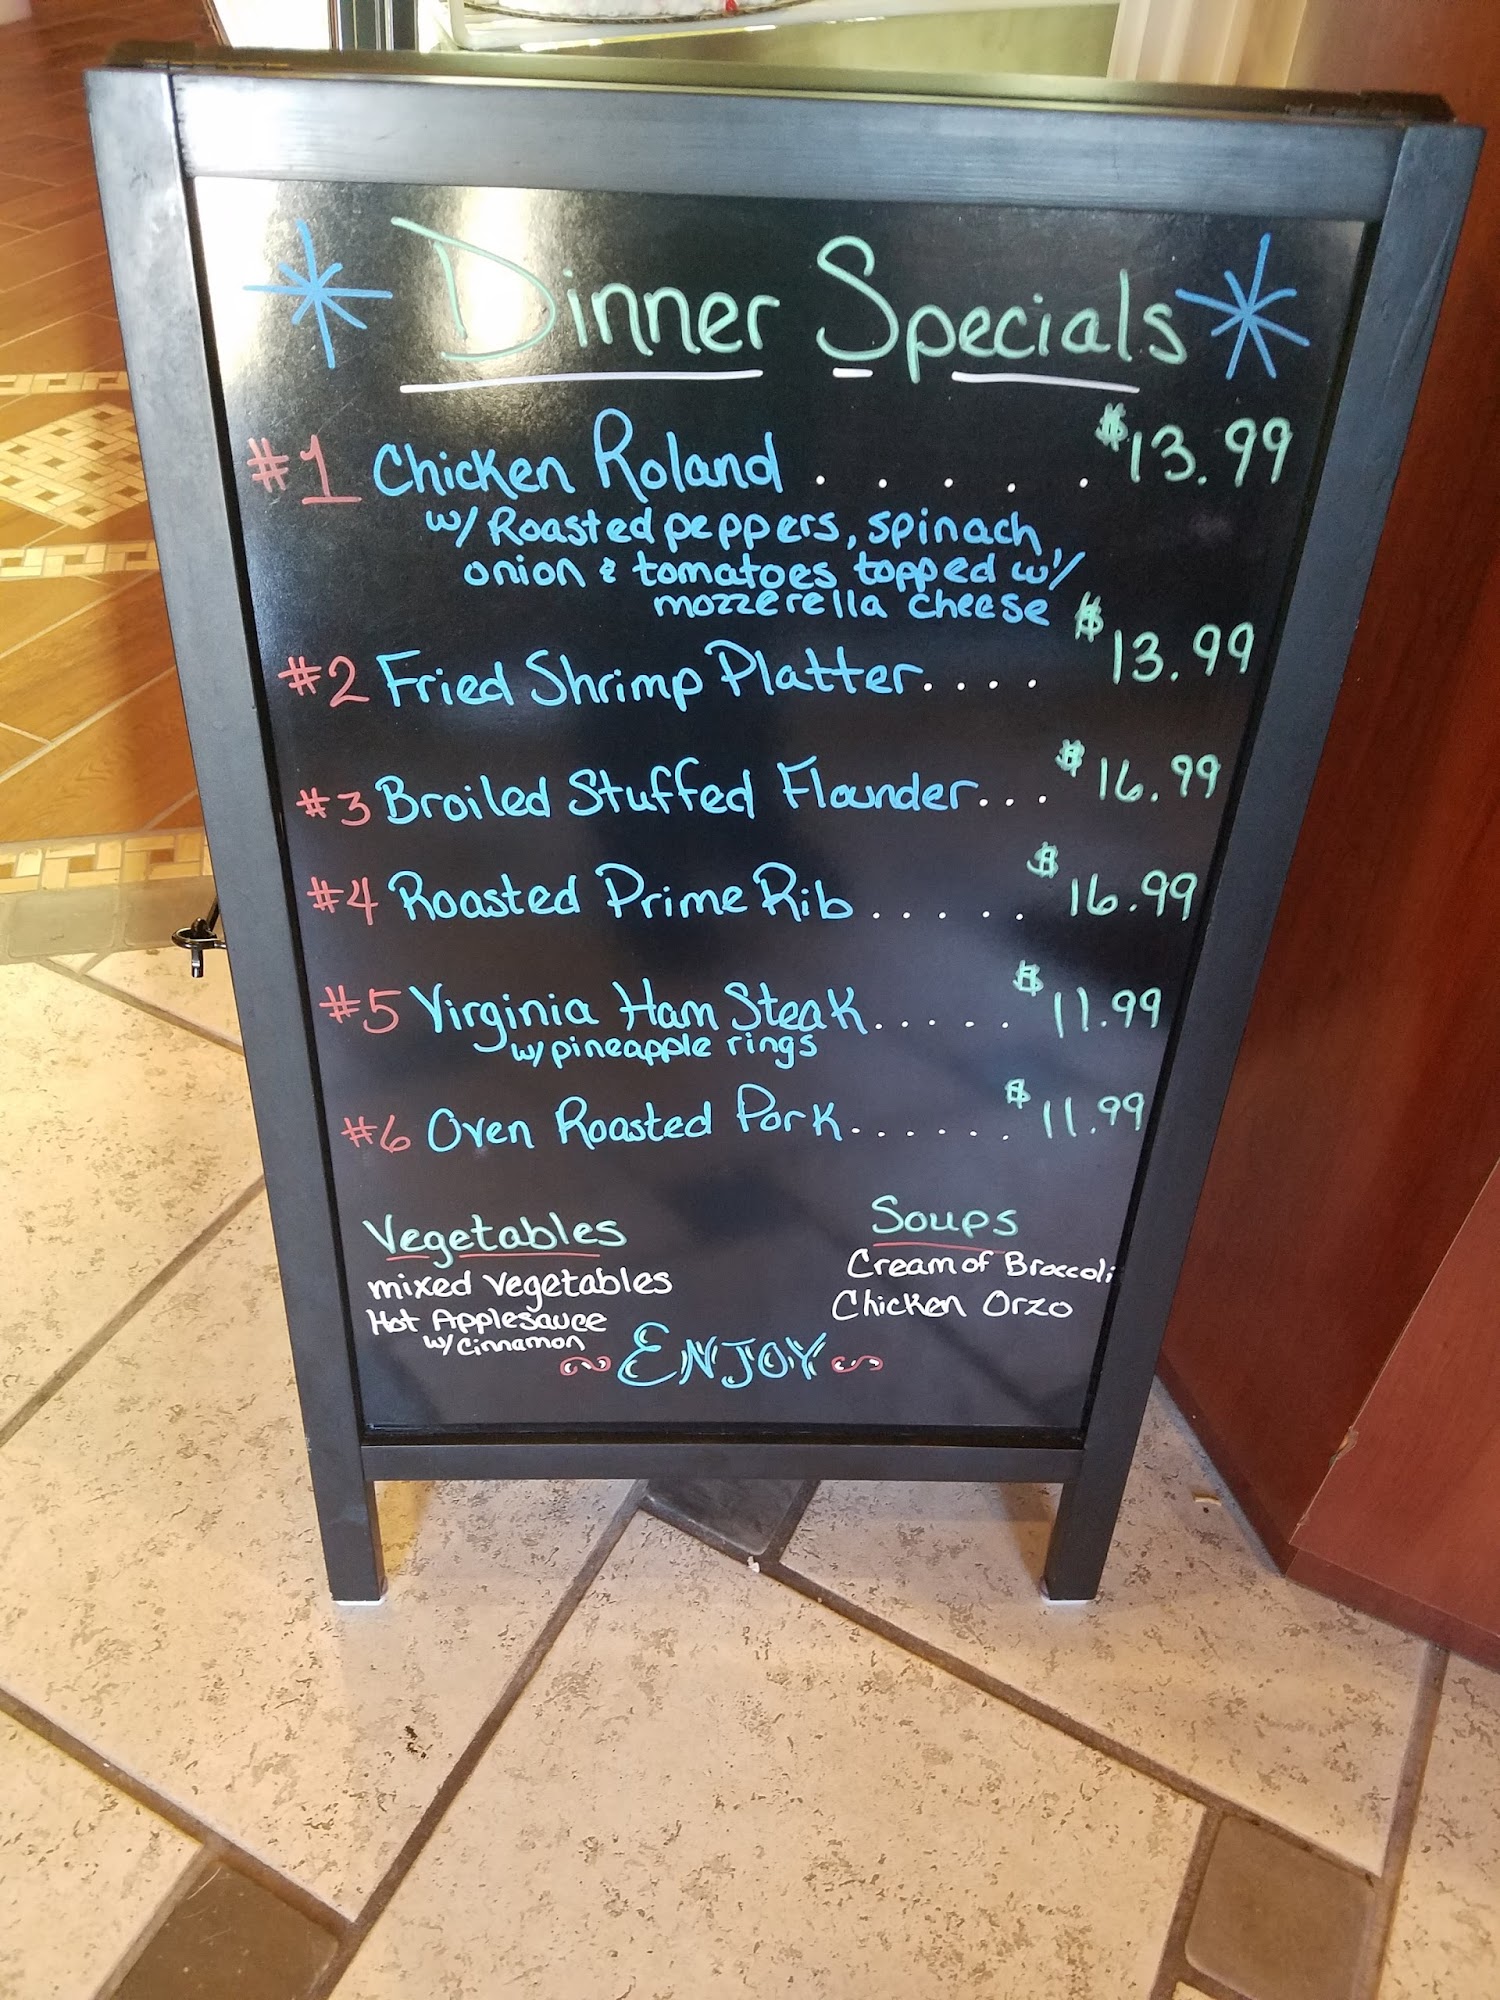 Dinner Specials
#1 Chicken Roland . . . . . $13.99
w/ Roasted peppers, spinach,
onion & tomatoes topped w/
mozzerella cheese
#2 Fried Shrimp Platter.... $13.99
#3 Broiled Stuffed Flounder... $16.99
#4 Roasted Prime Rib..... $16.99
#5 Virginia Ham Steak..... $11.99
w/ pineapple rings
#6 Oven Roasted Pork...... $11.99
Vegetables
mixed vegetables
Hot Applesauce
w/ cinnamon
Soups
Cream of Broccoli
Chicken Orzo
ENJOY